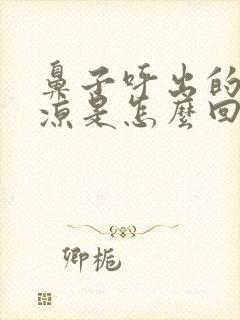 鼻子呼出的
凉是怎麼回
卿栀